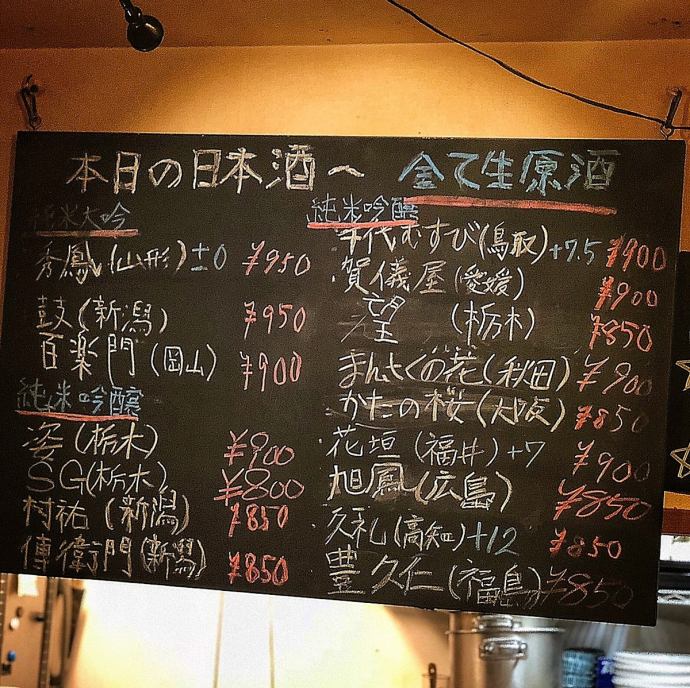 本日の日本酒へ 全て生原酒
純米大吟
秀鳳(山形)±0 ¥950
鼓(新潟) ¥950
百楽門(岡山) ¥900
純米吟醸
姿(栃木) ¥900
SG(栃木) ¥800
村祐(新潟) ¥850
傳衛門(新潟) ¥850
純米吟醸
千代むすび(鳥取)+7.5 ¥900
賀儀屋(愛媛) ¥900
望(栃木) ¥850
まんさくの花(秋田) ¥900
かたの桜(大阪) ¥850
花垣(福井)+7 ¥900
旭鳳(広島) ¥850
久礼(高知)+12 ¥850
豊久仁(福島) ¥850